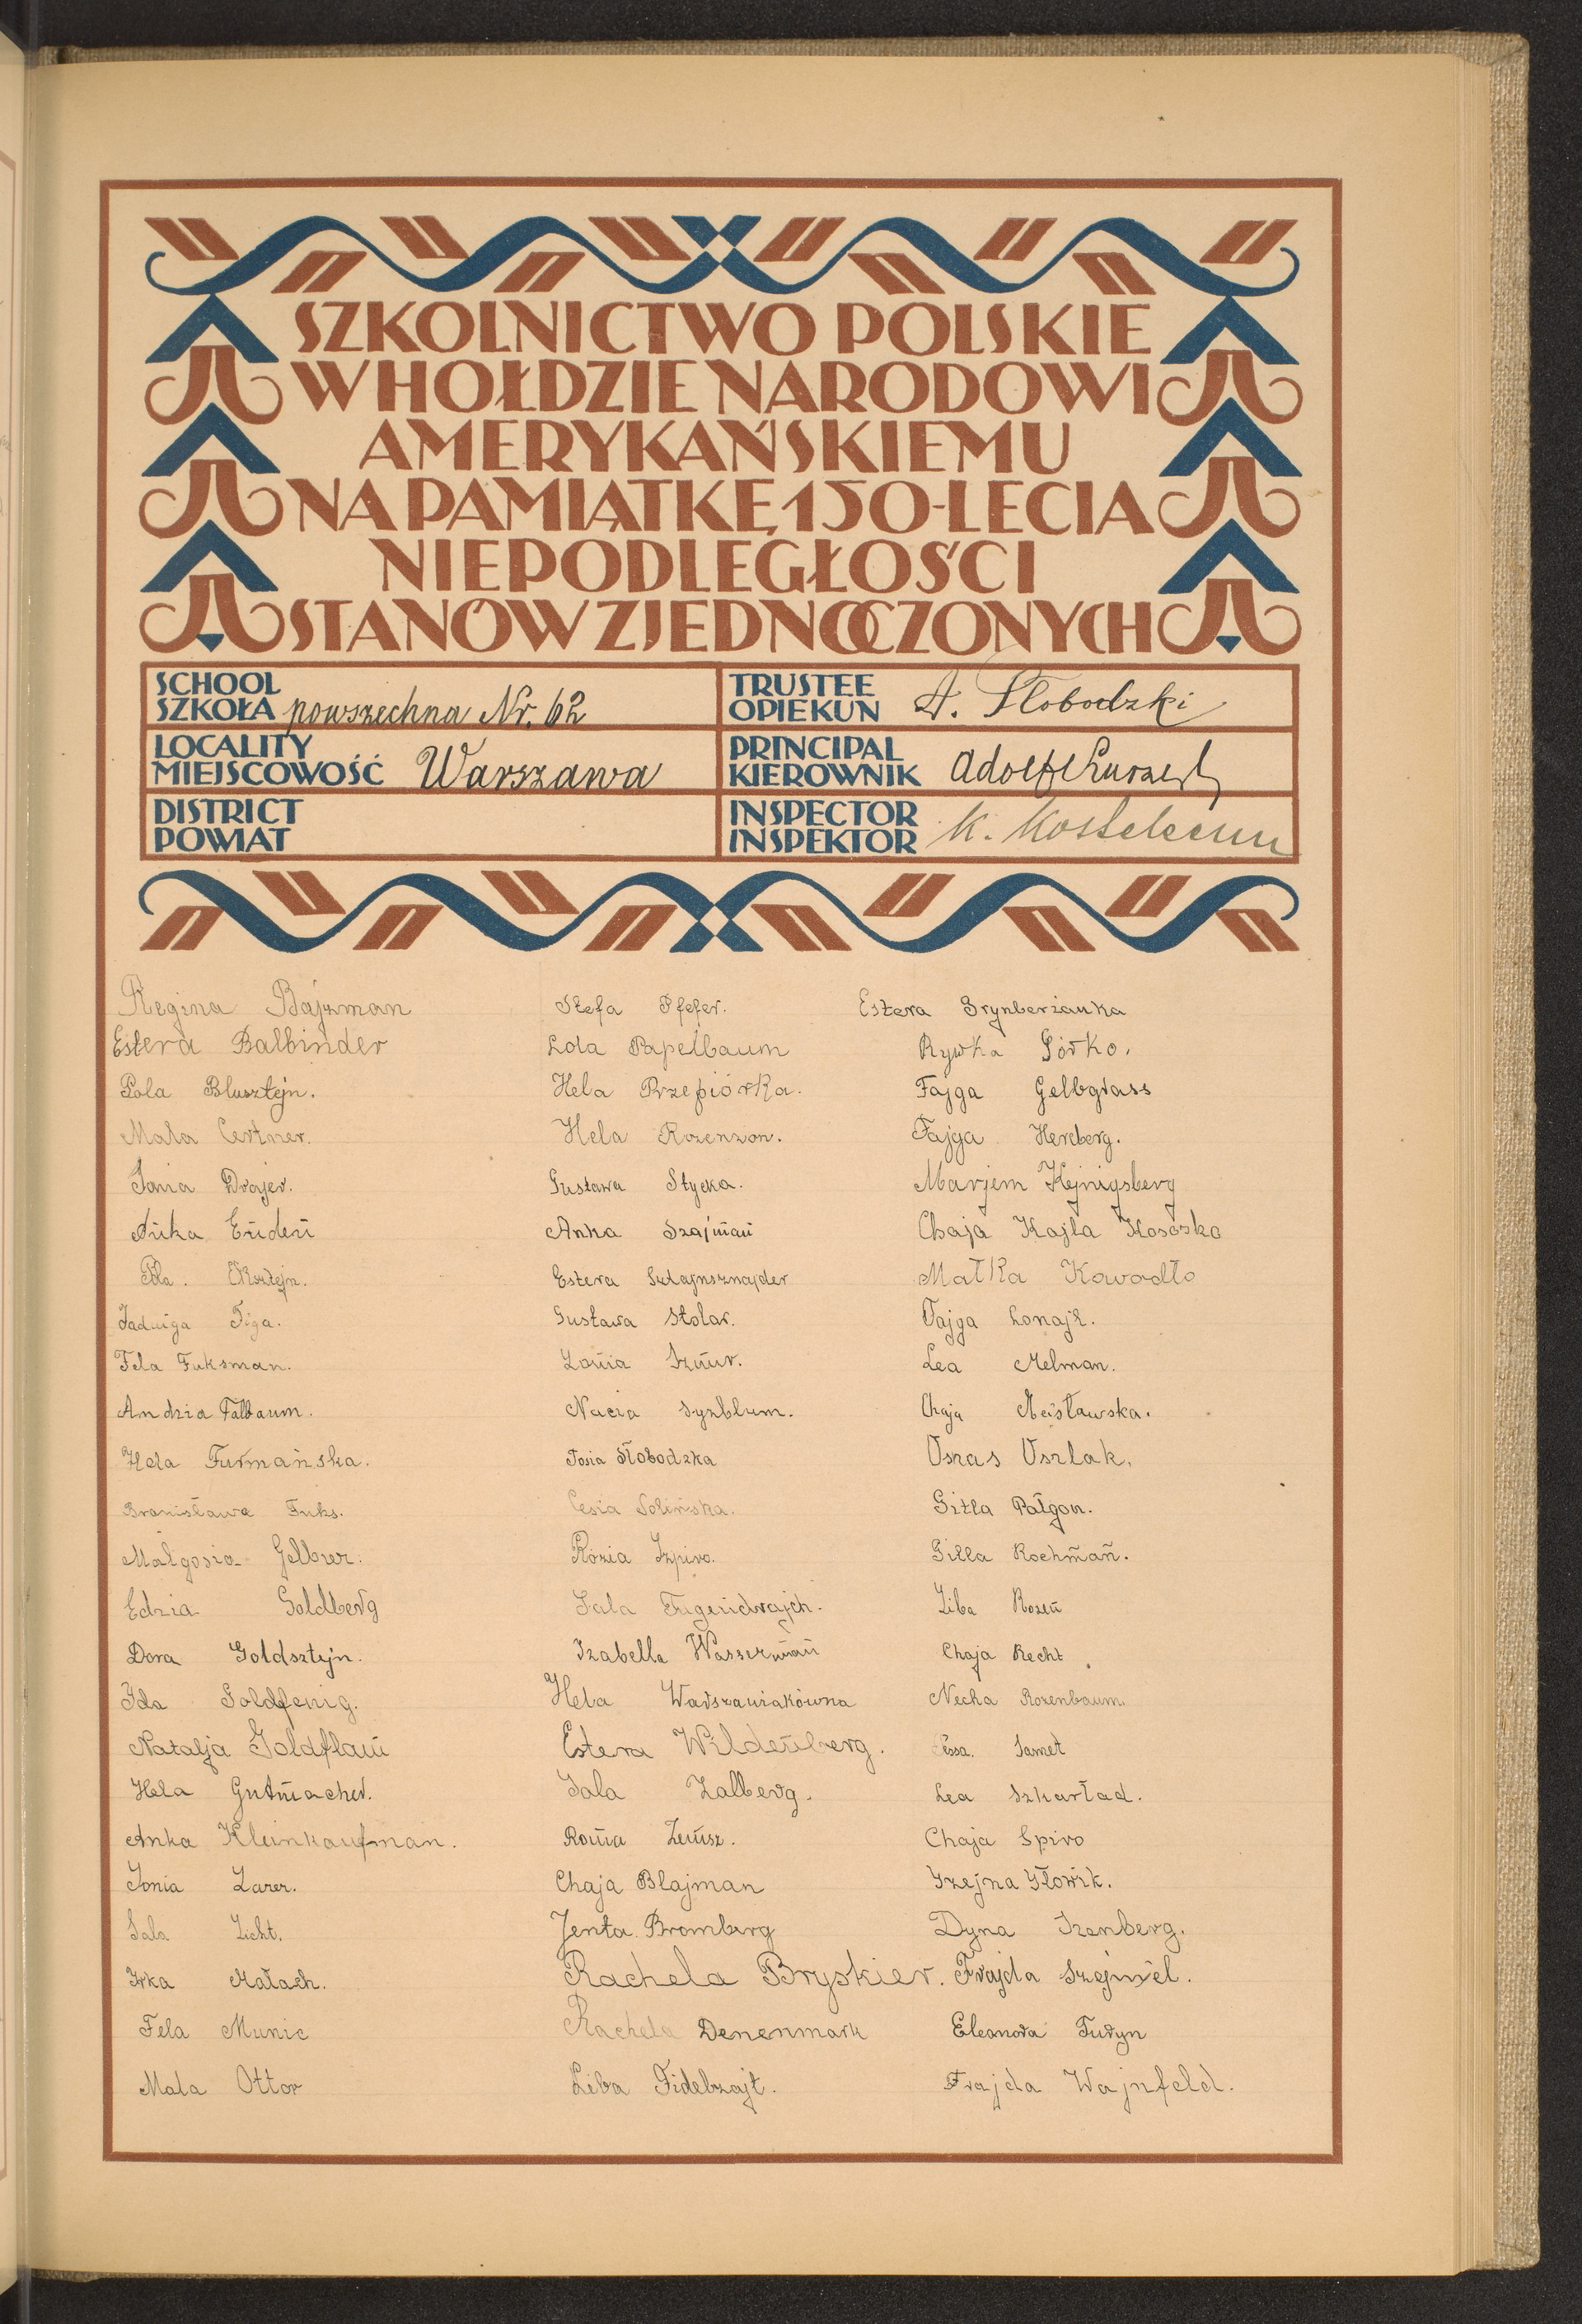 SZKOLNICTWO POLSKIE
W HOŁDZIE NARODOWI
AMERYKAŃSKIEMU
NA PAMIĄTKĘ 150-LECIA
NIEPODLEGŁOŚCI
STANÓW ZJEDNOCZONYCH
SCHOOL
SZKOŁA powszechna Nr. 62
TRUSTEE
OPIEKUN A. Słobodzki
LOCALITY
MIEJSCOWOŚĆ Warszawa
PRINCIPAL
KIEROWNIK Adolf
DISTRICT
POWIAT
INSPECTOR
INSPEKTOR K.
Regina Bajzman
Estera Balbinder
Pola Blusztejn.
Mala Certner.
Sonia Drajer.
Anka Enden
Pola. Eksztejn.
Jadwiga Figa.
Fela Fuksman.
Andzia Falbaum.
Hela Furmańska.
Bronisława Fuks.
Małgosia Gelbrer.
Edzia Goldberg
Dora Goldsztejn.
Ida Goldfenig.
Natalja Goldflam
Hela Gutmacher.
Anka Kleinkaufman.
Sonia Lazer.
Sala Licht.
Irka Małach.
Fela Munic
Mala Ottor
Stefa Pfefer.
Lola Papelbaum
Hela Przepiórka.
Hela Rozenzon.
Gustawa Stycka.
Anka Szajman
Estera Sztajnsznajder
Gustawa Stolar.
Lonia Sznur.
Nacia Syzblum.
Tosia Słobodzka
Cesia Solińska.
Rózia Szpiro.
Sala Tugendrajch.
Izabella Wasserman
Hela Warszawiakówna
Estera Wildenberg.
Sala Zalberg.
Roma Zemsz.
Chaja Blajman
Jenta Bromberg
Rachela Bryskier.
Rachela Denenmark
Liba Fidelzajt.
Estera Grynberżanka
Rywka Górko.
Fajga Gelbgrass
Fajga Hercberg.
Marjem Kejnigsberg
Chaja Kajla Kososko
Małka Kowadło
Fajga Lonajz.
Lea Melman.
Chaja Mersławska.
Oszlak.
Gitla Pałgon.
Gitla Rochman.
Liba Rozen
Chaja Recht
Necha Rozenbaum.
Samet
Lea Szkarład.
Chaja Spiro
Szejna Słowik.
Dyna Szenberg.
Frajda Szejnwel.
Eleonora Turyn
Frajda Wajnfeld.